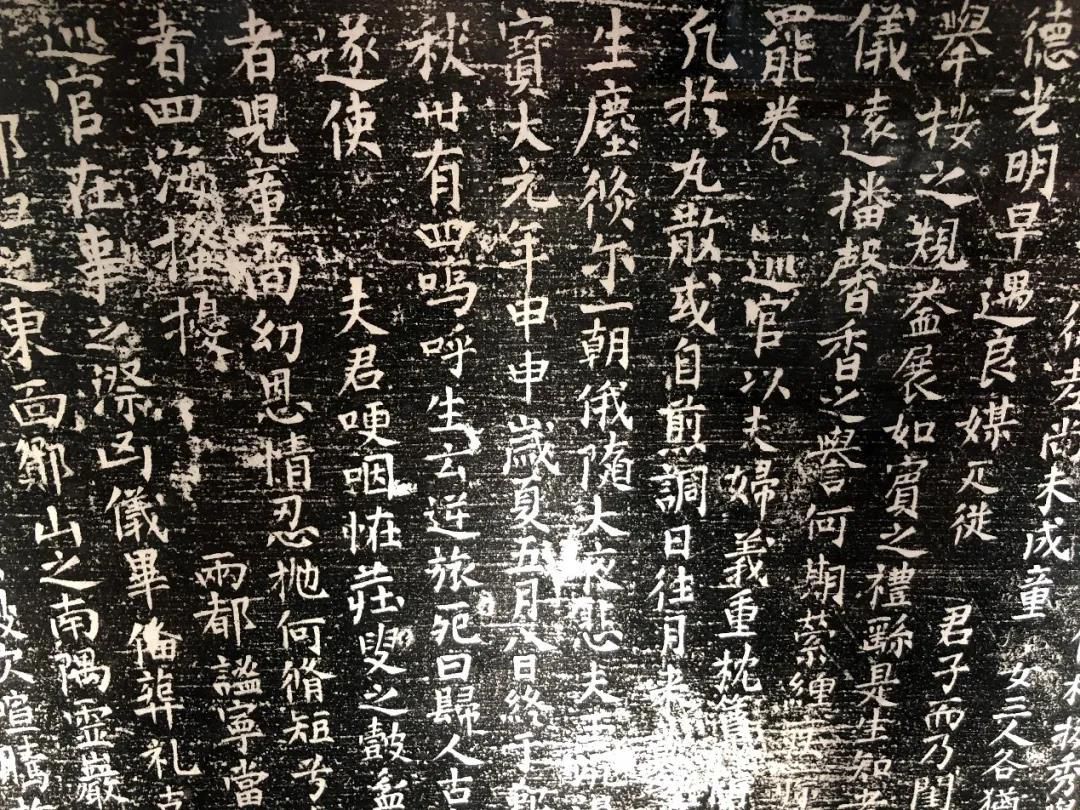 德光明早遇良媒
尚未成童女三人各
舉按之規益展如賓之禮
君子而乃閨
儀遠播馨香之譽何期縈纏
繇是生知
罷卷
巡官以夫婦義重枕
凡於丸散或自煎調日往月來
生塵倏尔一朝俄隨大夜悲夫
寶大元年甲申歲夏五月八日終于
秋卅有四嗚呼生云逆旅死曰歸人古
遂使
夫君哽咽恠莊叟之鼓盆
者見童尚幼恩情忍抛何脩短兮
者四海撥擾
兩都謐寧當
巡官在事之際凶儀畢備葬礼
之東面鄒山之南隅靈巖